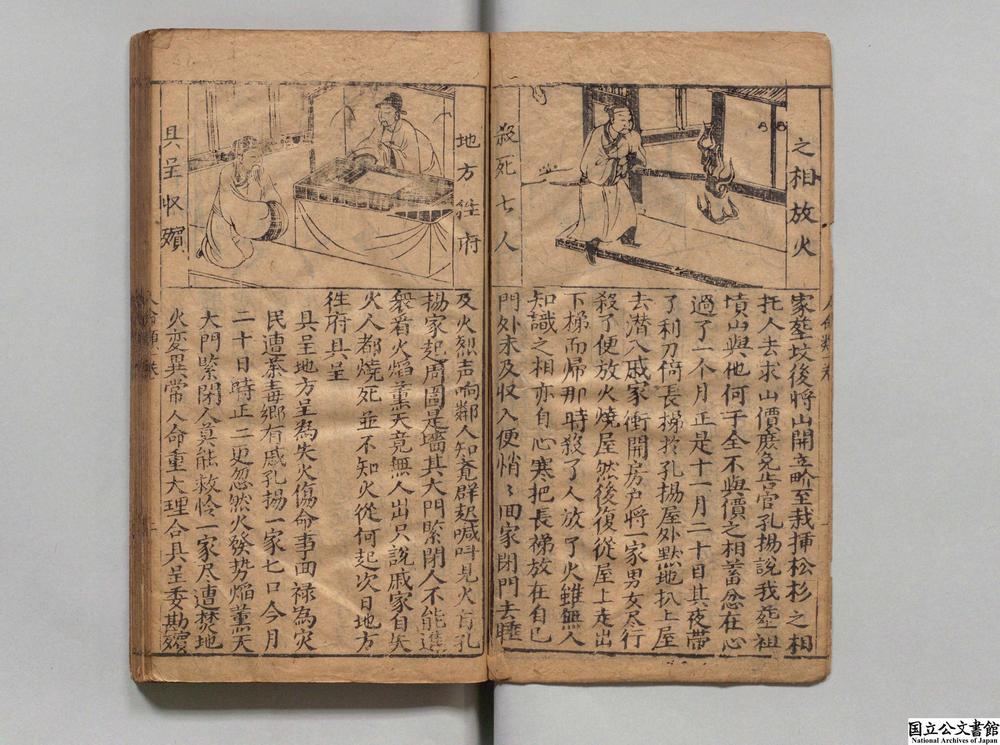 之相放火
殺死七人
家塟坟後將山開立界至栽揷松杉之相
托人去求山價庶免告官孔揚說我塟祖
墳山與他何干全不與價之相蓄忿在心
過了一个月正是十一月二十日其夜帶
了利刀倚長梯扵孔揚屋外默地扒上屋
去潜入戚家衝開房户將一家男女尽行
殺了便放火燒屋然後復從屋上走出
下梯而帰那時殺了人放了火雖無人
知識之相亦自心寒把長梯放在自己
門外未及収入便悄〻回家閉門去睡
地方徃府
具呈収殯
及火烈声响鄰人知竟群起喊呌見火肯孔
揚家起周圍是墻其大門緊閉人不能進
衆看火焰薫天竟無人出只說戚家自失
火人都燒死並不知火從何起次日地方
徃府具呈
具呈地方呈為失火傷命事回禄為灾
民遭荼毒鄉有戚孔揚一家七口今月
二十日時正二更忽然火發势焰薫天
大門緊閉人莫能救怜一家尽遭焚地
火変異常人命重大理合具呈委勘殯
人命類 卷
国立公文書館
National Archives of Japan